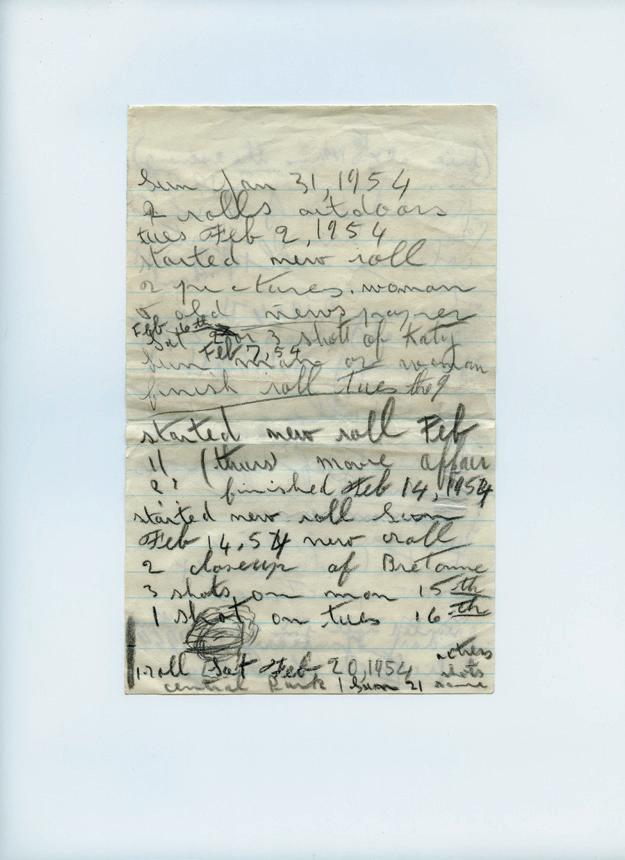 Sun Jan 31, 1954
2 rolls outdoors
tues Feb 2, 1954
started new roll
2 pictures. woman
& old newspaper
Feb 6th
Sat 2 or 3 shots of Katy
Feb 7, 54
Sun more of woman
finish roll tues the 9
started new roll Feb
11 (thurs) movie affair
?? finished Feb 14, 1954
started new roll Sun
Feb 14, 54 new roll
2 closeup of
3 shots on mon 15th
1 shot on tues 16th
1 roll Sat Feb 20, 1954 actress shots
central Park 1 Sun 21 same